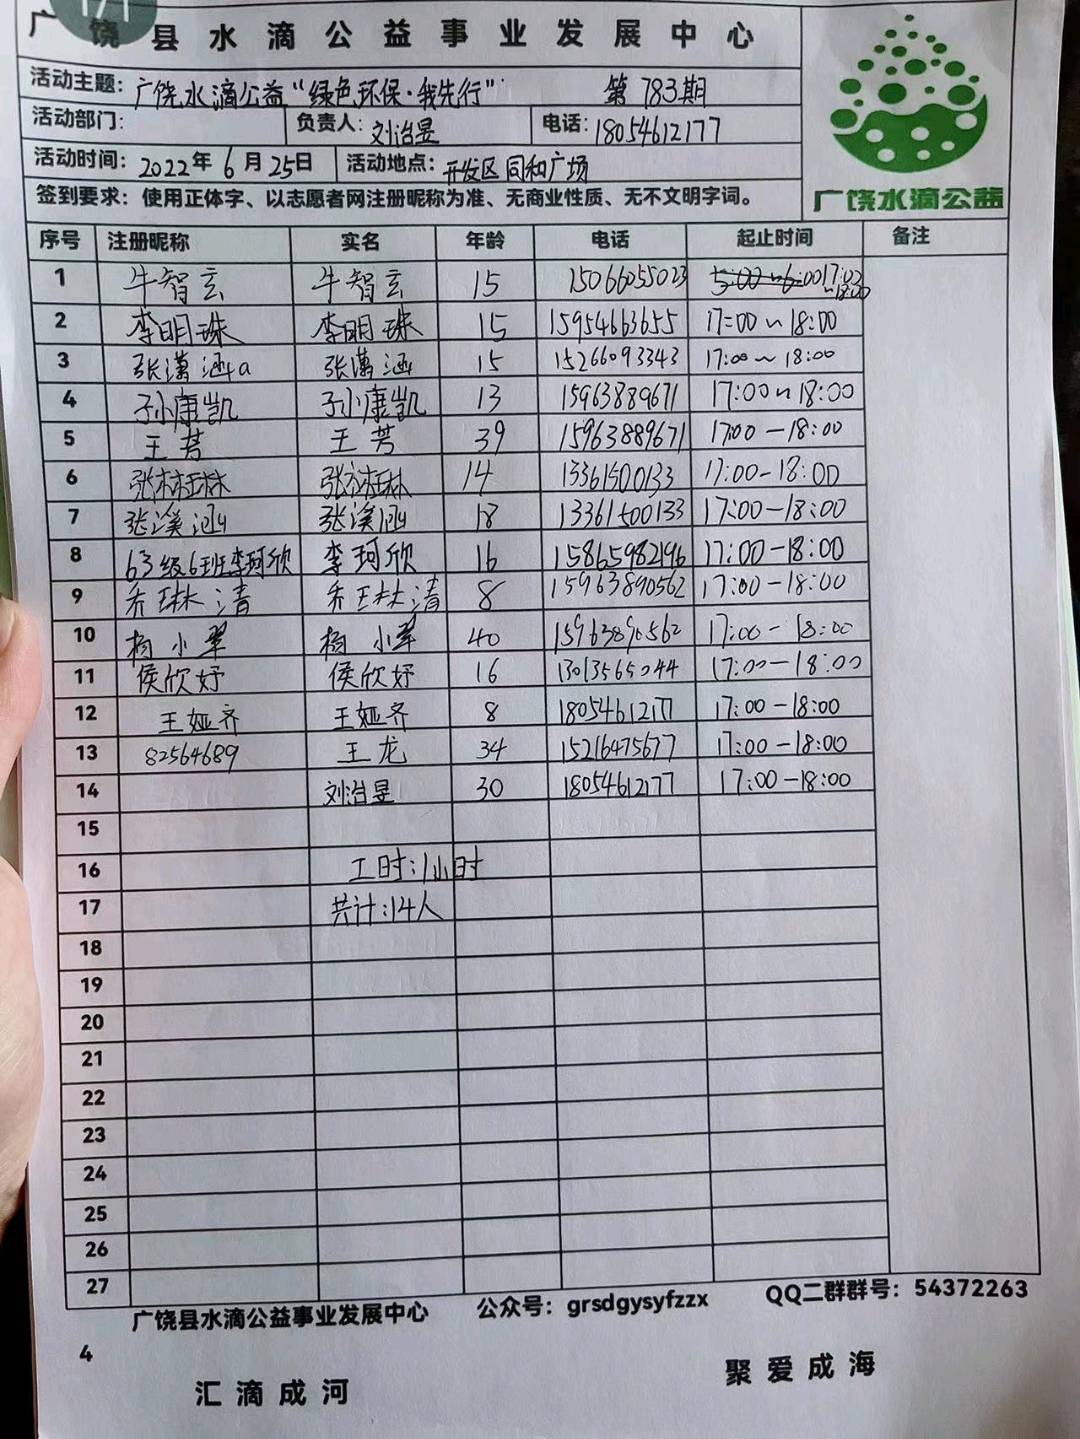 广饶县水滴公益事业发展中心
活动主题：广饶水滴公益“绿色环保·我先行” 第783期
活动部门： 负责人：刘治昱 电话：18054612177
活动时间：2022年6月25日 活动地点：开发区同和广场
签到要求：使用正体字、以志愿者网注册昵称为准、无商业性质、无不文明字词。
广饶水滴公益
序号 注册昵称 实名 年龄 电话 起止时间 备注
1 牛智玄 牛智玄 15 15066055023 17:03~18:00
2 李明珠 李明珠 15 15954663655 17:00~18:00
3 张潇涵a 张潇涵 15 15266093343 17:00~18:00
4 孙小康凯 孙小康凯 13 15963889671 17:00~18:00
5 王芳 王芳 39 15963889671 17:00-18:00
6 张林琳 张林琳 14 13361500133 17:00-18:00
7 张溪涵 张溪涵 18 13361500133 17:00-18:00
8 63级6班李珂欣 李珂欣 16 15865982196 17:00-18:00
9 乔琳清 乔琳清 8 15963890562 17:00-18:00
10 杨小翠 杨小翠 40 15963890562 17:00-18:00
11 侯欣妤 侯欣妤 16 13013565044 17:00-18:00
12 王娅齐 王娅齐 8 18054612177 17:00-18:00
13 82564689 王龙 34 15216475677 17:00-18:00
14 刘治昱 30 18054612177 17:00-18:00
15
16 工时:1小时
17 共计:14人
18
19
20
21
22
23
24
25
26
27
广饶县水滴公益事业发展中心 公众号：grsdgysyfzzx QQ二群群号：54372263
4
汇滴成河 聚爱成海